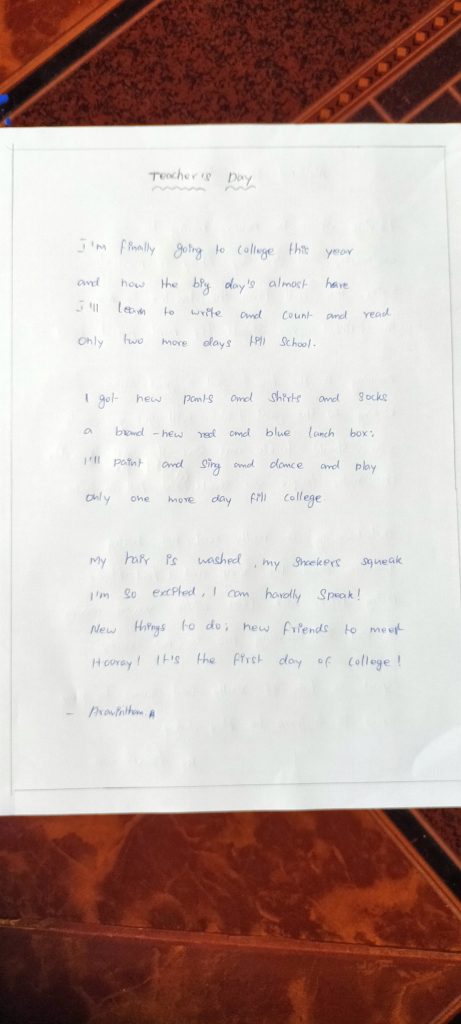 Teacher's Day
I'm finally going to college this year
and now the big day's almost here
I'll learn to write and count and read
only two more days till school.
I got new pants and shirts and socks
a brand-new red and blue lunch box;
I'll paint and sing and dance and play
only one more day till college
My hair is washed, my sneekers squeak
I'm so excited, I can hardly speak!
New things to do; new friends to meet
Hooray! It's the first day of college!
- Aravinthan. A